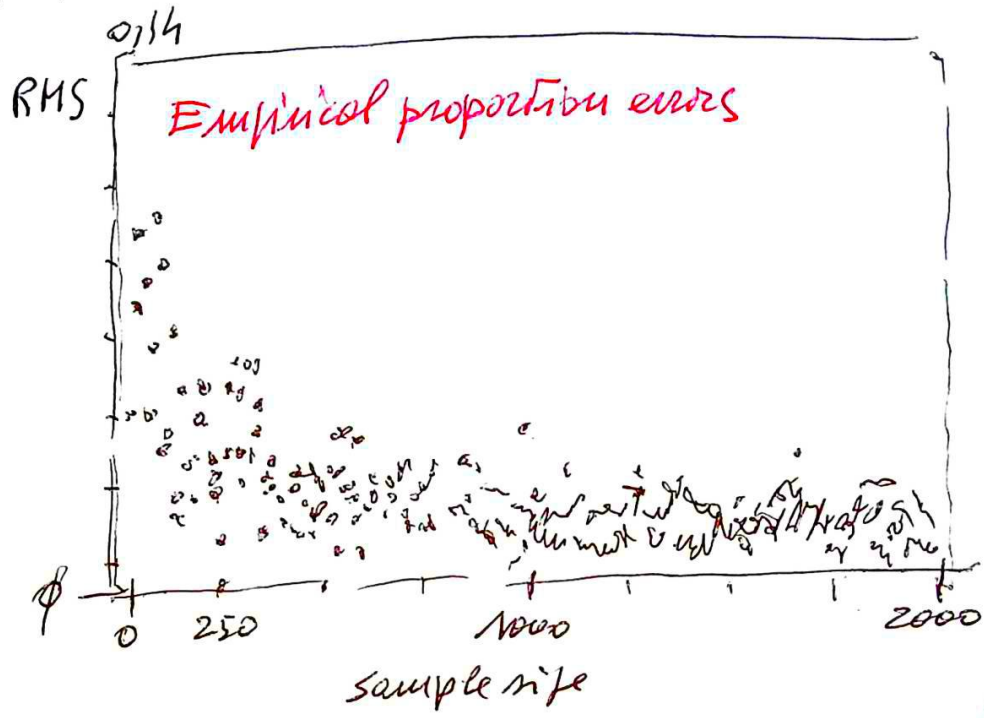 0,14
RMS
Empirical proportion errors
0
0 250 1000 2000
sample size